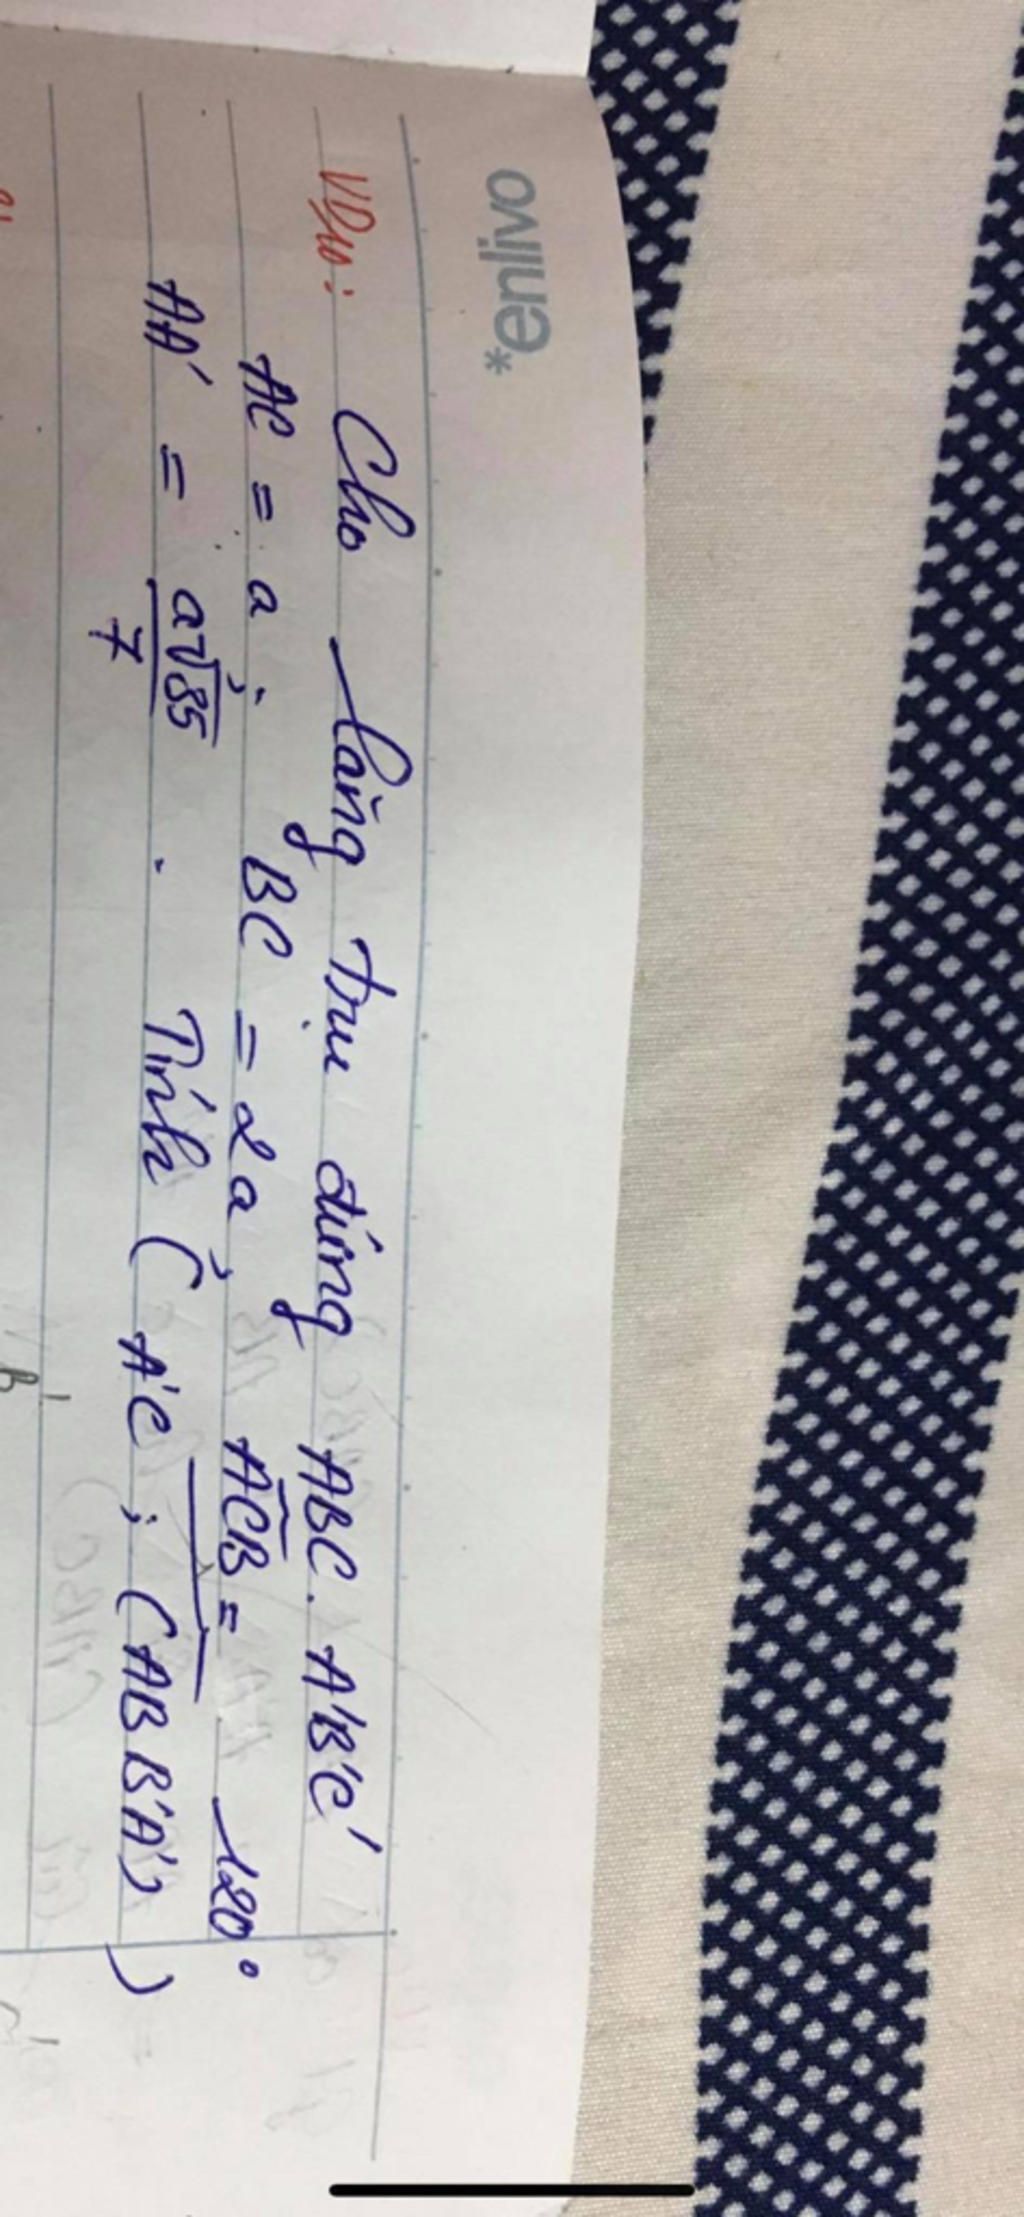 *enlivo
VD10: Cho lăng trụ đứng ABC. A'B'C'
AC = a ; BC = 2a, ACB = 120°
AA' = a√35/7 . Tính ( A'C ; (ABB'A') )